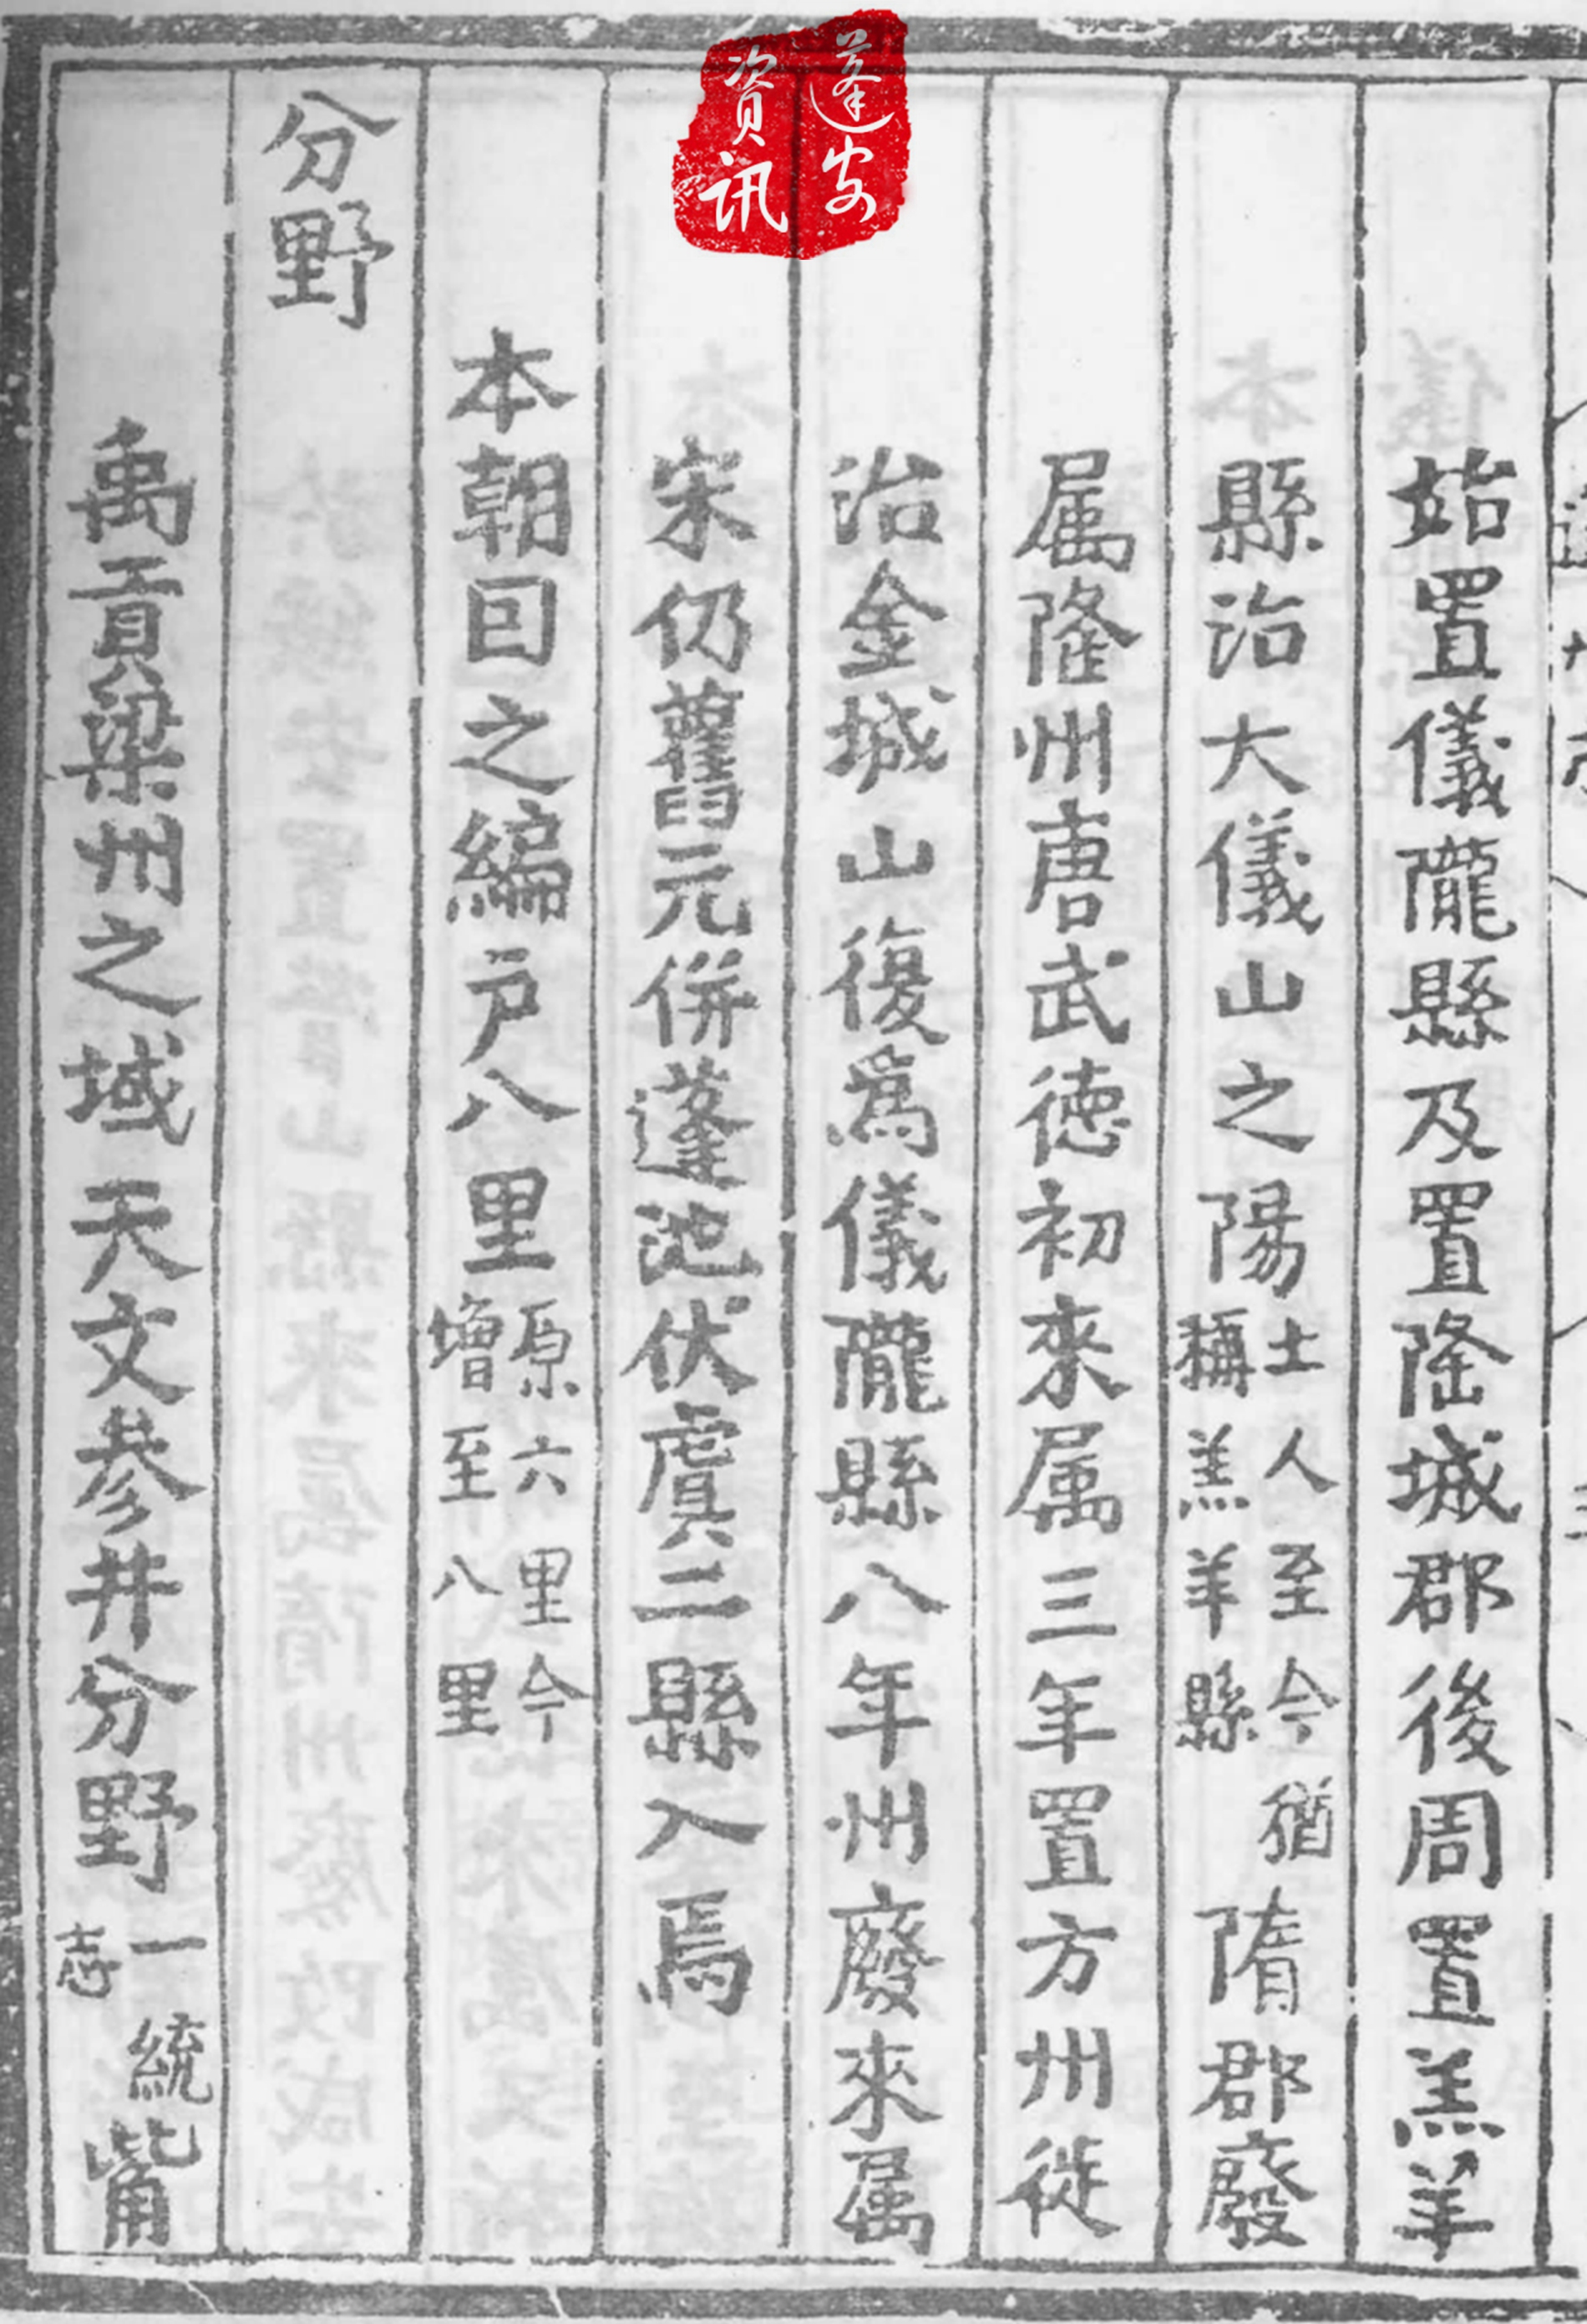 蓬安
資訊
始置儀隴縣及置隆城郡後周置羔羊
縣治大儀山之陽土人至今猶稱羔羊縣隋郡廢
属隆州唐武德初來属三年置方州徙
治金城山復爲儀隴縣八年州廢來属
宋仍舊元併蓬池伏虞二縣入焉
本朝因之編户八里原六里今增至八里
分野
禹貢梁州之域天文參井分野一統志觜